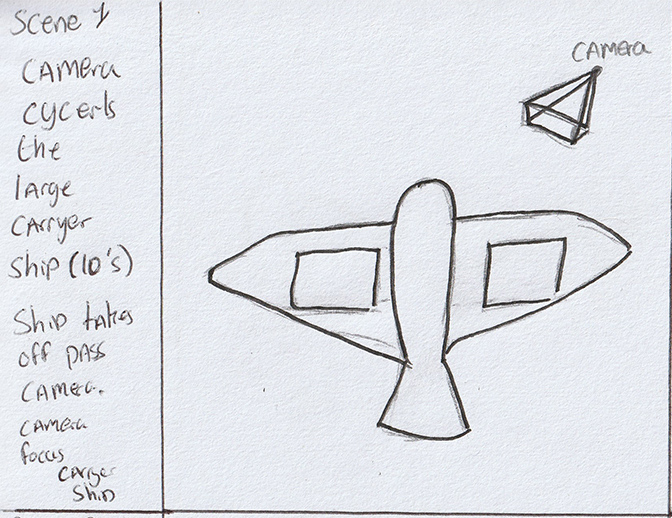 Scene 1
CAMERA
CYCERLS
the
large
CARRYER
Ship (10's)
Ship takes
off pass
CAMERA.
CAMERA
focus
CARYER
Ship
CAMERA